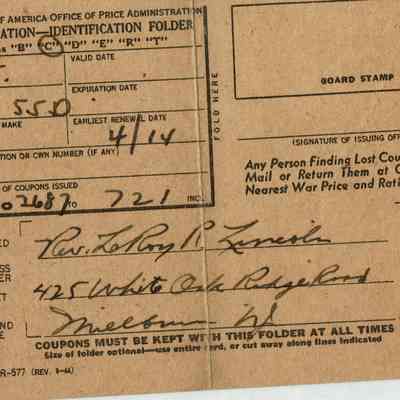 OF AMERICA OFFICE OF PRICE ADMINISTRATION
ATION—IDENTIFICATION FOLDER
"B" "C" "D" "E" "R" "T"
VALID DATE
EXPIRATION DATE
550
MAKE
EARLIEST RENEWAL DATE
4/14
TION OR OWN NUMBER (IF ANY)
OF COUPONS ISSUED
02687 TO 721 INC.
FOLD HERE
BOARD STAMP
(SIGNATURE OF ISSUING OFF
Any Person Finding Lost Cou
Mail or Return Them at O
Nearest War Price and Rati
Rev. LeRoy R Lincoln
425 White Oak Ridge Road
Millburn NJ
COUPONS MUST BE KEPT WITH THIS FOLDER AT ALL TIMES
Size of folder optional—use entire card, or cut away along lines indicated
R-577 (REV. 9-44)